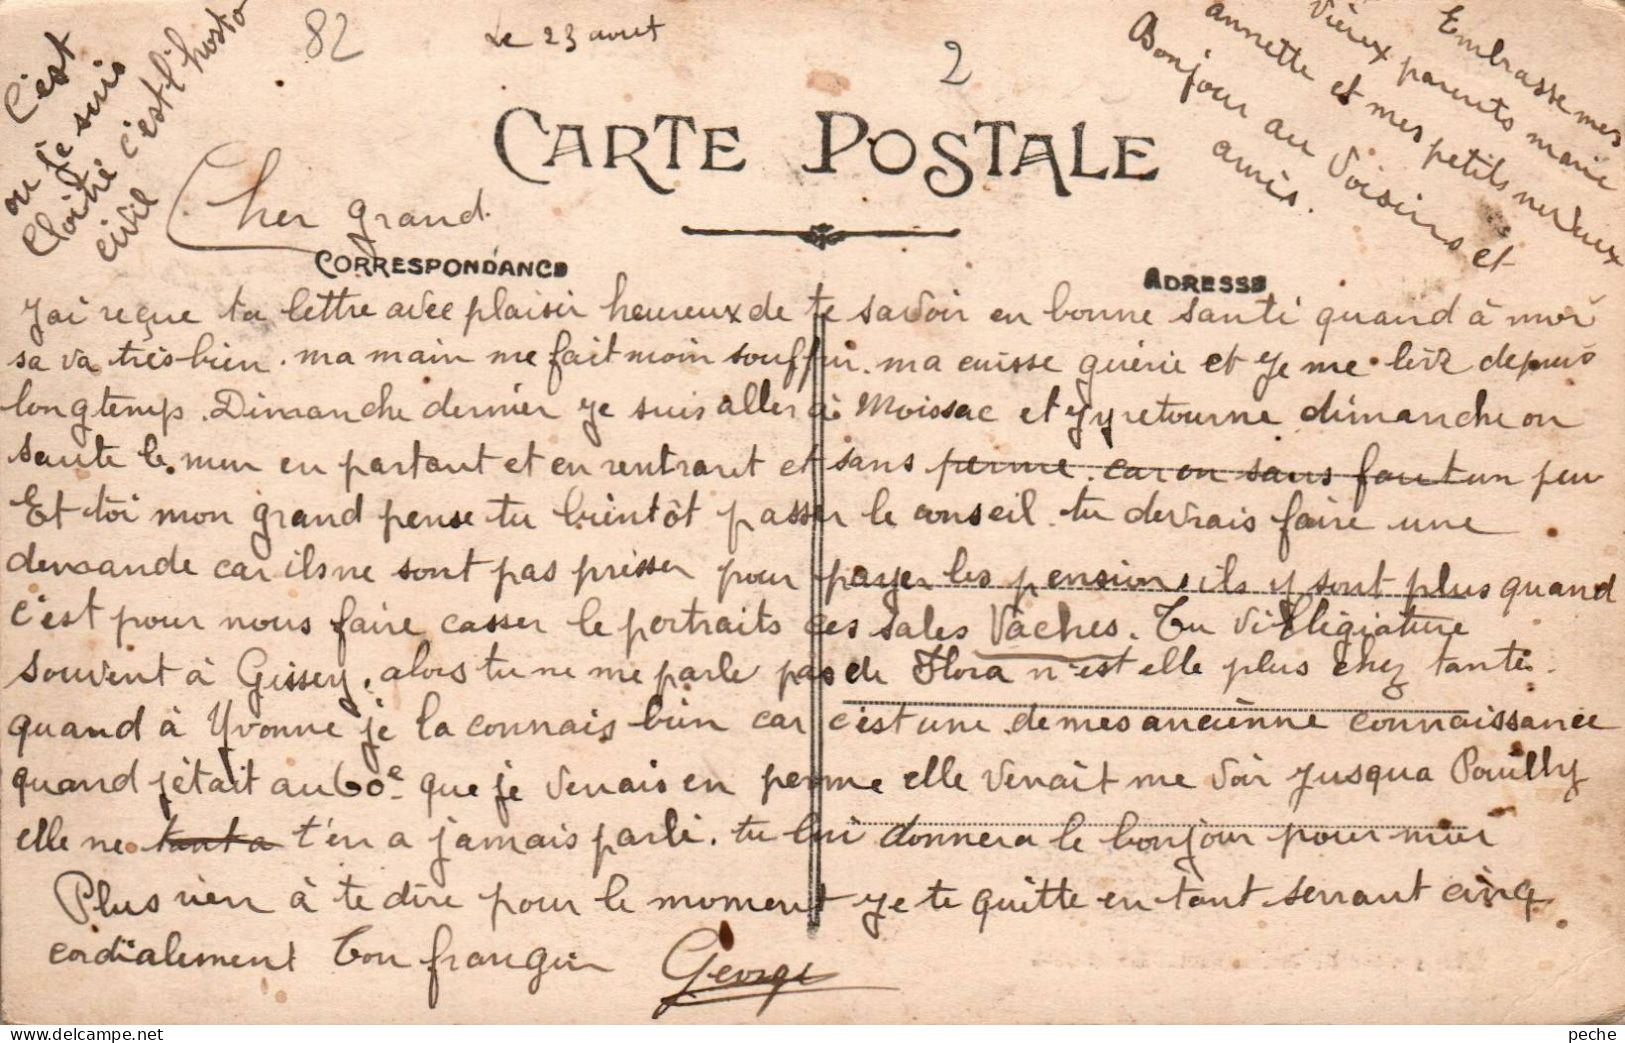 C'est
ou je suis
Cloitré c'est l'hosto
civil
82
Le 23 aout
2
Embrasse mes
vieux parents marie
annette et mes petits neveux
Bonjour au Voisins et
amis.
CARTE POSTALE
Cher grand.
CORRESPONDANCE
ADRESSE
J'ai reçue ta lettre avec plaisir heureux de te savoir en bonne santé quand à moi
sa va très bien. ma main me fait moin souffrir. ma cuisse guérie et je me lève depuis
longtemp. Dimanche dernier je suis aller à Moissac et j'y retourne dimanche on
saute le mur en partant et en rentrant et sans perme. car on sans fout un peu
Et toi mon grand pense tu bientôt passer le conseil. tu devrais faire une
demande car ils ne sont pas presser pour payer les pensions, ils y sont plus quand
c'est pour nous faire casser le portraits ces sales Vaches. Tu villégiature
souvent à Gissey, alors tu ne me parle pas de Flora n'est elle plus chez tante.
quand à Yvonne je la connais bien car c'est une de mes ancienne connaissance
quand j'était au 60e que je venais en perme elle venait me voir jusqua Pouilly
elle ne tant a t'en a jamais parlé. tu lui donnera le bonjour pour moi
Plus rien à te dire pour le moment je te quitte en tant serrant cinq
cordialement Ton frangin George
peche